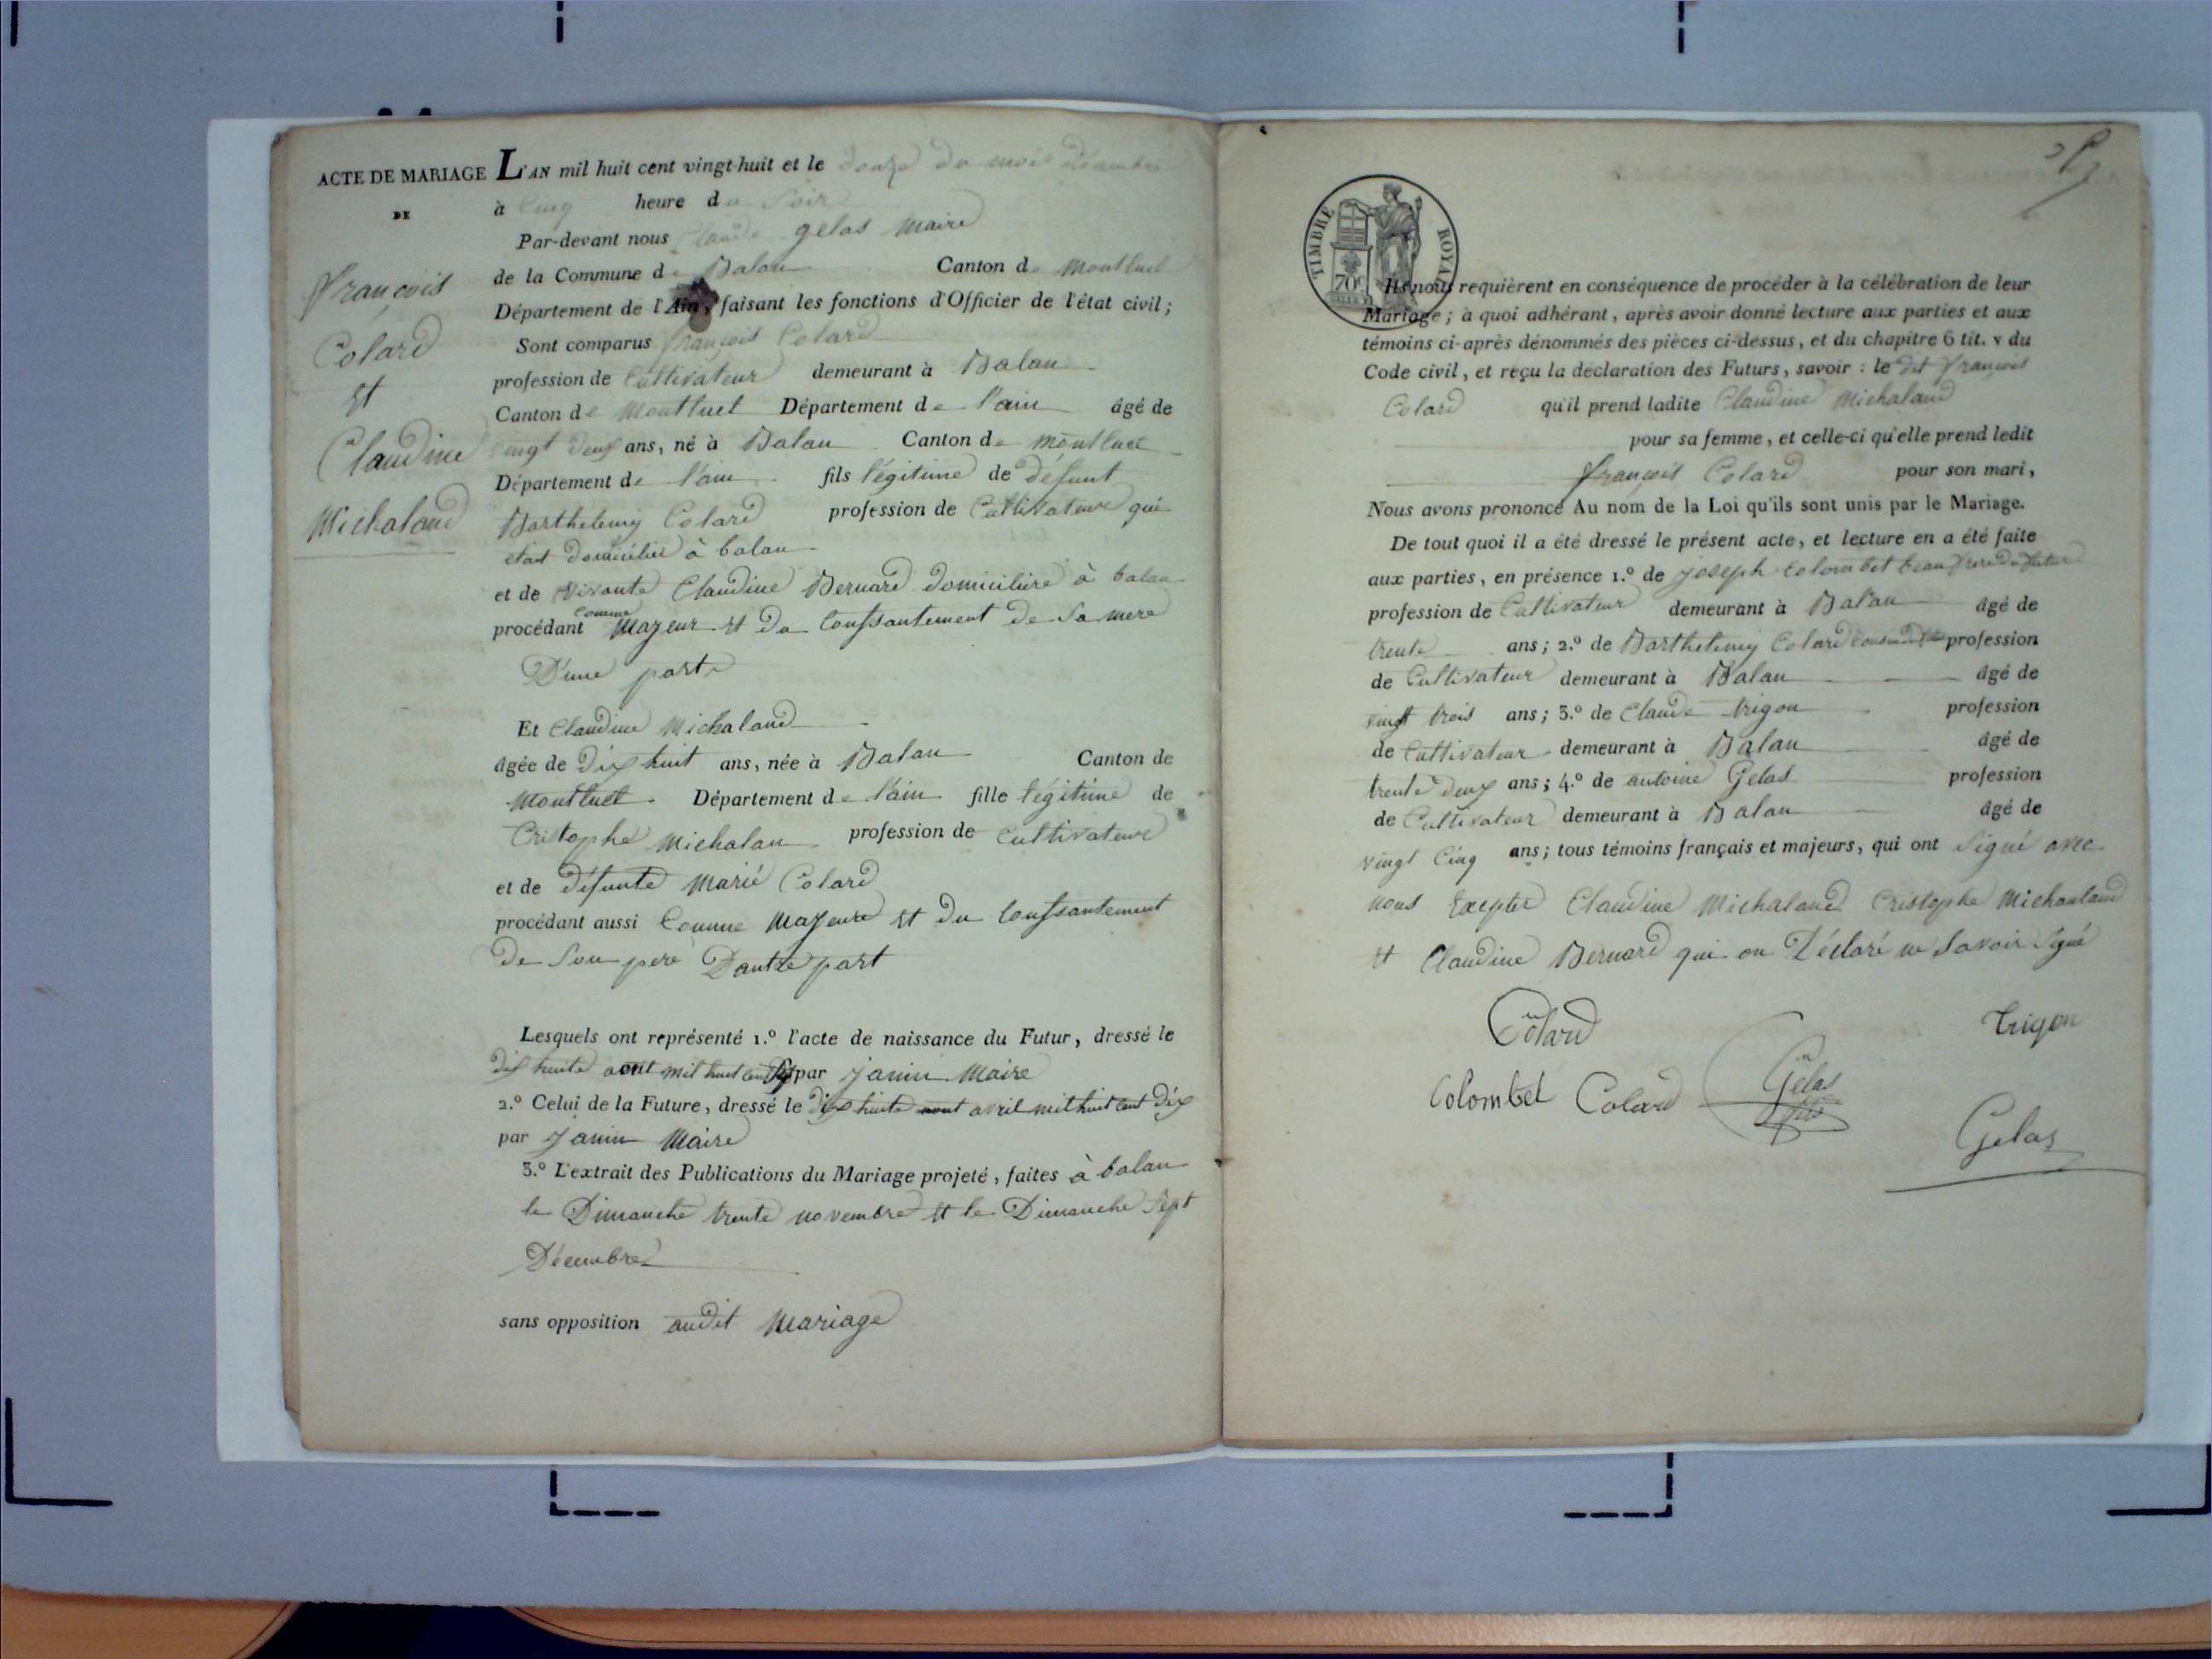 ACTE DE MARIAGE
DE
françois
Colard
et
Claudine
Michaland
L'AN mil huit cent vingt-huit et le douze du mois décembre
à Cinq heure du Soir
Par-devant nous Claude gelas Maire
de la Commune de Balan Canton de Montluel
Département de l'Ain, faisant les fonctions d'Officier de l'état civil;
Sont comparus françois Colard
profession de Cultivateur demeurant à Balan
Canton de Montluel Département de l'ain âgé de
vingt deux ans, né à Balan Canton de Montluel
Département de l'ain fils légitime de défunt
Barthelemy Colard profession de Cultivateur qui
était domicilié à balan
et de vivante Claudine Bernard domicilière à balan
procédant comme Majeur et du Conssantement de Sa mere
D'une part
Et Claudine Michaland
âgée de Dix huit ans, née à Balan Canton de
Montluel Département de l'ain fille légitime de
Cristophe Michalan profession de Cultivateur
et de défunte Marié Colard
procédant aussi Comme Majeure et du Conssantement
De Son pere Dautre part
Lesquels ont représenté 1.º l'acte de naissance du Futur, dressé le
dix huite aout mil huit cent par Janin Maire
2.º Celui de la Future, dressé le dix huite aout avril mil huit cent dix
par Janin Maire
3.º L'extrait des Publications du Mariage projeté, faites à balan
le Dimanche trente novembre et le Dimanche Sept
Décembre
sans opposition audit Mariage
TIMBRE ROYAL
70c
Ils nous requièrent en conséquence de procéder à la célébration de leur
Mariage; à quoi adhérant, après avoir donné lecture aux parties et aux
témoins ci-après dénommés des pièces ci-dessus, et du chapitre 6 tit. v du
Code civil, et reçu la déclaration des Futurs, savoir: le dit françois
Colard qu'il prend ladite Claudine Michaland
pour sa femme, et celle-ci qu'elle prend ledit
françois Colard pour son mari,
Nous avons prononcé Au nom de la Loi qu'ils sont unis par le Mariage.
De tout quoi il a été dressé le présent acte, et lecture en a été faite
aux parties, en présence 1.º de Joseph Colombet beau frere du futur
profession de Cultivateur demeurant à Balan âgé de
trente ans; 2.º de Barthelemy Colard cousin profession
de Cultivateur demeurant à Balan âgé de
vingt trois ans; 3.º de Claude trigon profession
de Cultivateur demeurant à Balan âgé de
trente deux ans; 4.º de antoine Gelas profession
de Cultivateur demeurant à Balan âgé de
vingt Cinq ans; tous témoins français et majeurs, qui ont Signé avec
nous Excepter Claudine Michaland Cristophe Michauland
et Claudine Bernard qui on Déclaré ne Savoir Signé
Colard
trigon
Colombet Colard Gelas
Gelas